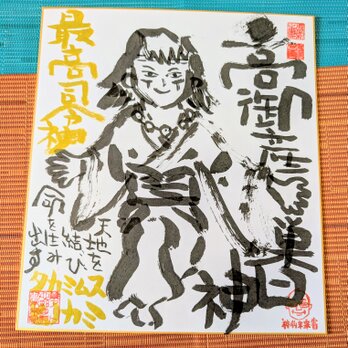 高御産巣日神
最高司令神
天地を
結び
命を生み
出す
タカミムス
ヒノカミ